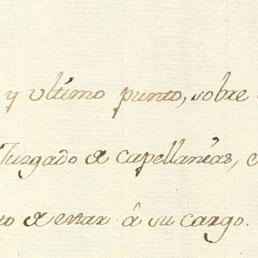 y ultimo punto, sobre
Juzgado de capellanias,
de estar á su cargo.